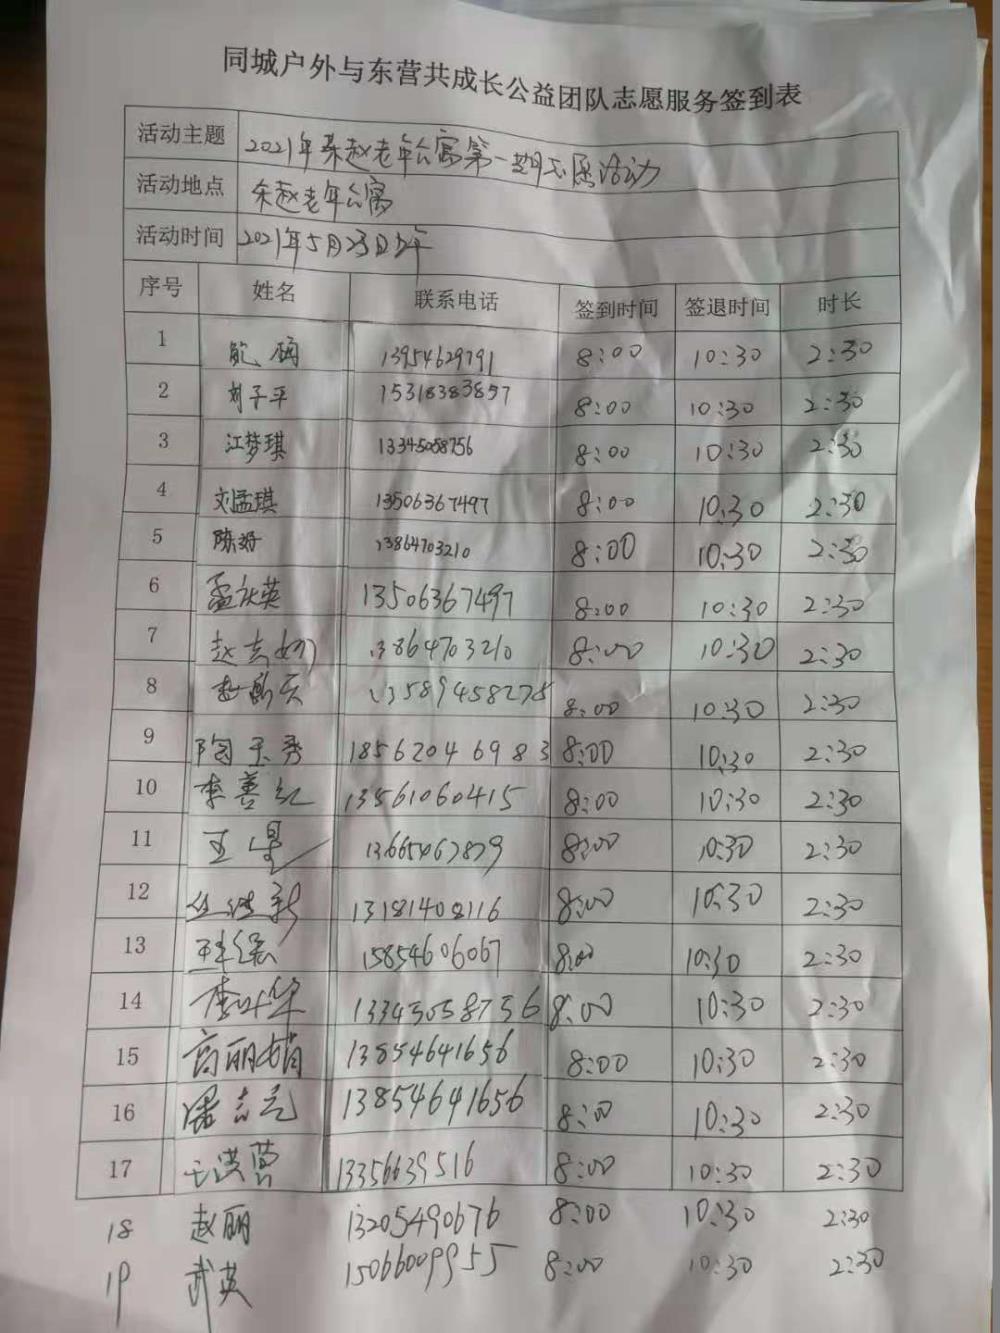 同城户外与东营共成长公益团队志愿服务签到表
活动主题 2021年朱赵老年公寓第一期志愿活动
活动地点 朱赵老年公寓
活动时间 2021年5月23日上午
序号 姓名 联系电话 签到时间 签退时间 时长
1 13954629791 8:00 10:30 2:30
2 刘子平 15318383857 8:00 10:30 2:30
3 江梦琪 13345058756 8:00 10:30 2:30
4 刘孟琪 13506367497 8:00 10:30 2:30
5 陈好 13864703210 8:00 10:30 2:30
6 孟庆英 13506367497 8:00 10:30 2:30
7 13864703210 8:00 10:30 2:30
8 13589458278 8:00 10:30 2:30
9 陶玉秀 18562046983 8:00 10:30 2:30
10 李善红 13561060415 8:00 10:30 2:30
11 王星 13665467879 8:00 10:30 2:30
12 13181408116 8:00 10:30 2:30
13 15854606067 8:00 10:30 2:30
14 李叶华 13345058756 8:00 10:30 2:30
15 高丽娟 13854641656 8:00 10:30 2:30
16 13854641656 8:00 10:30 2:30
17 王洪营 13356639516 8:00 10:30 2:30
18 赵丽 13205490676 8:00 10:30 2:30
19 武英 15066009955 8:00 10:30 2:30